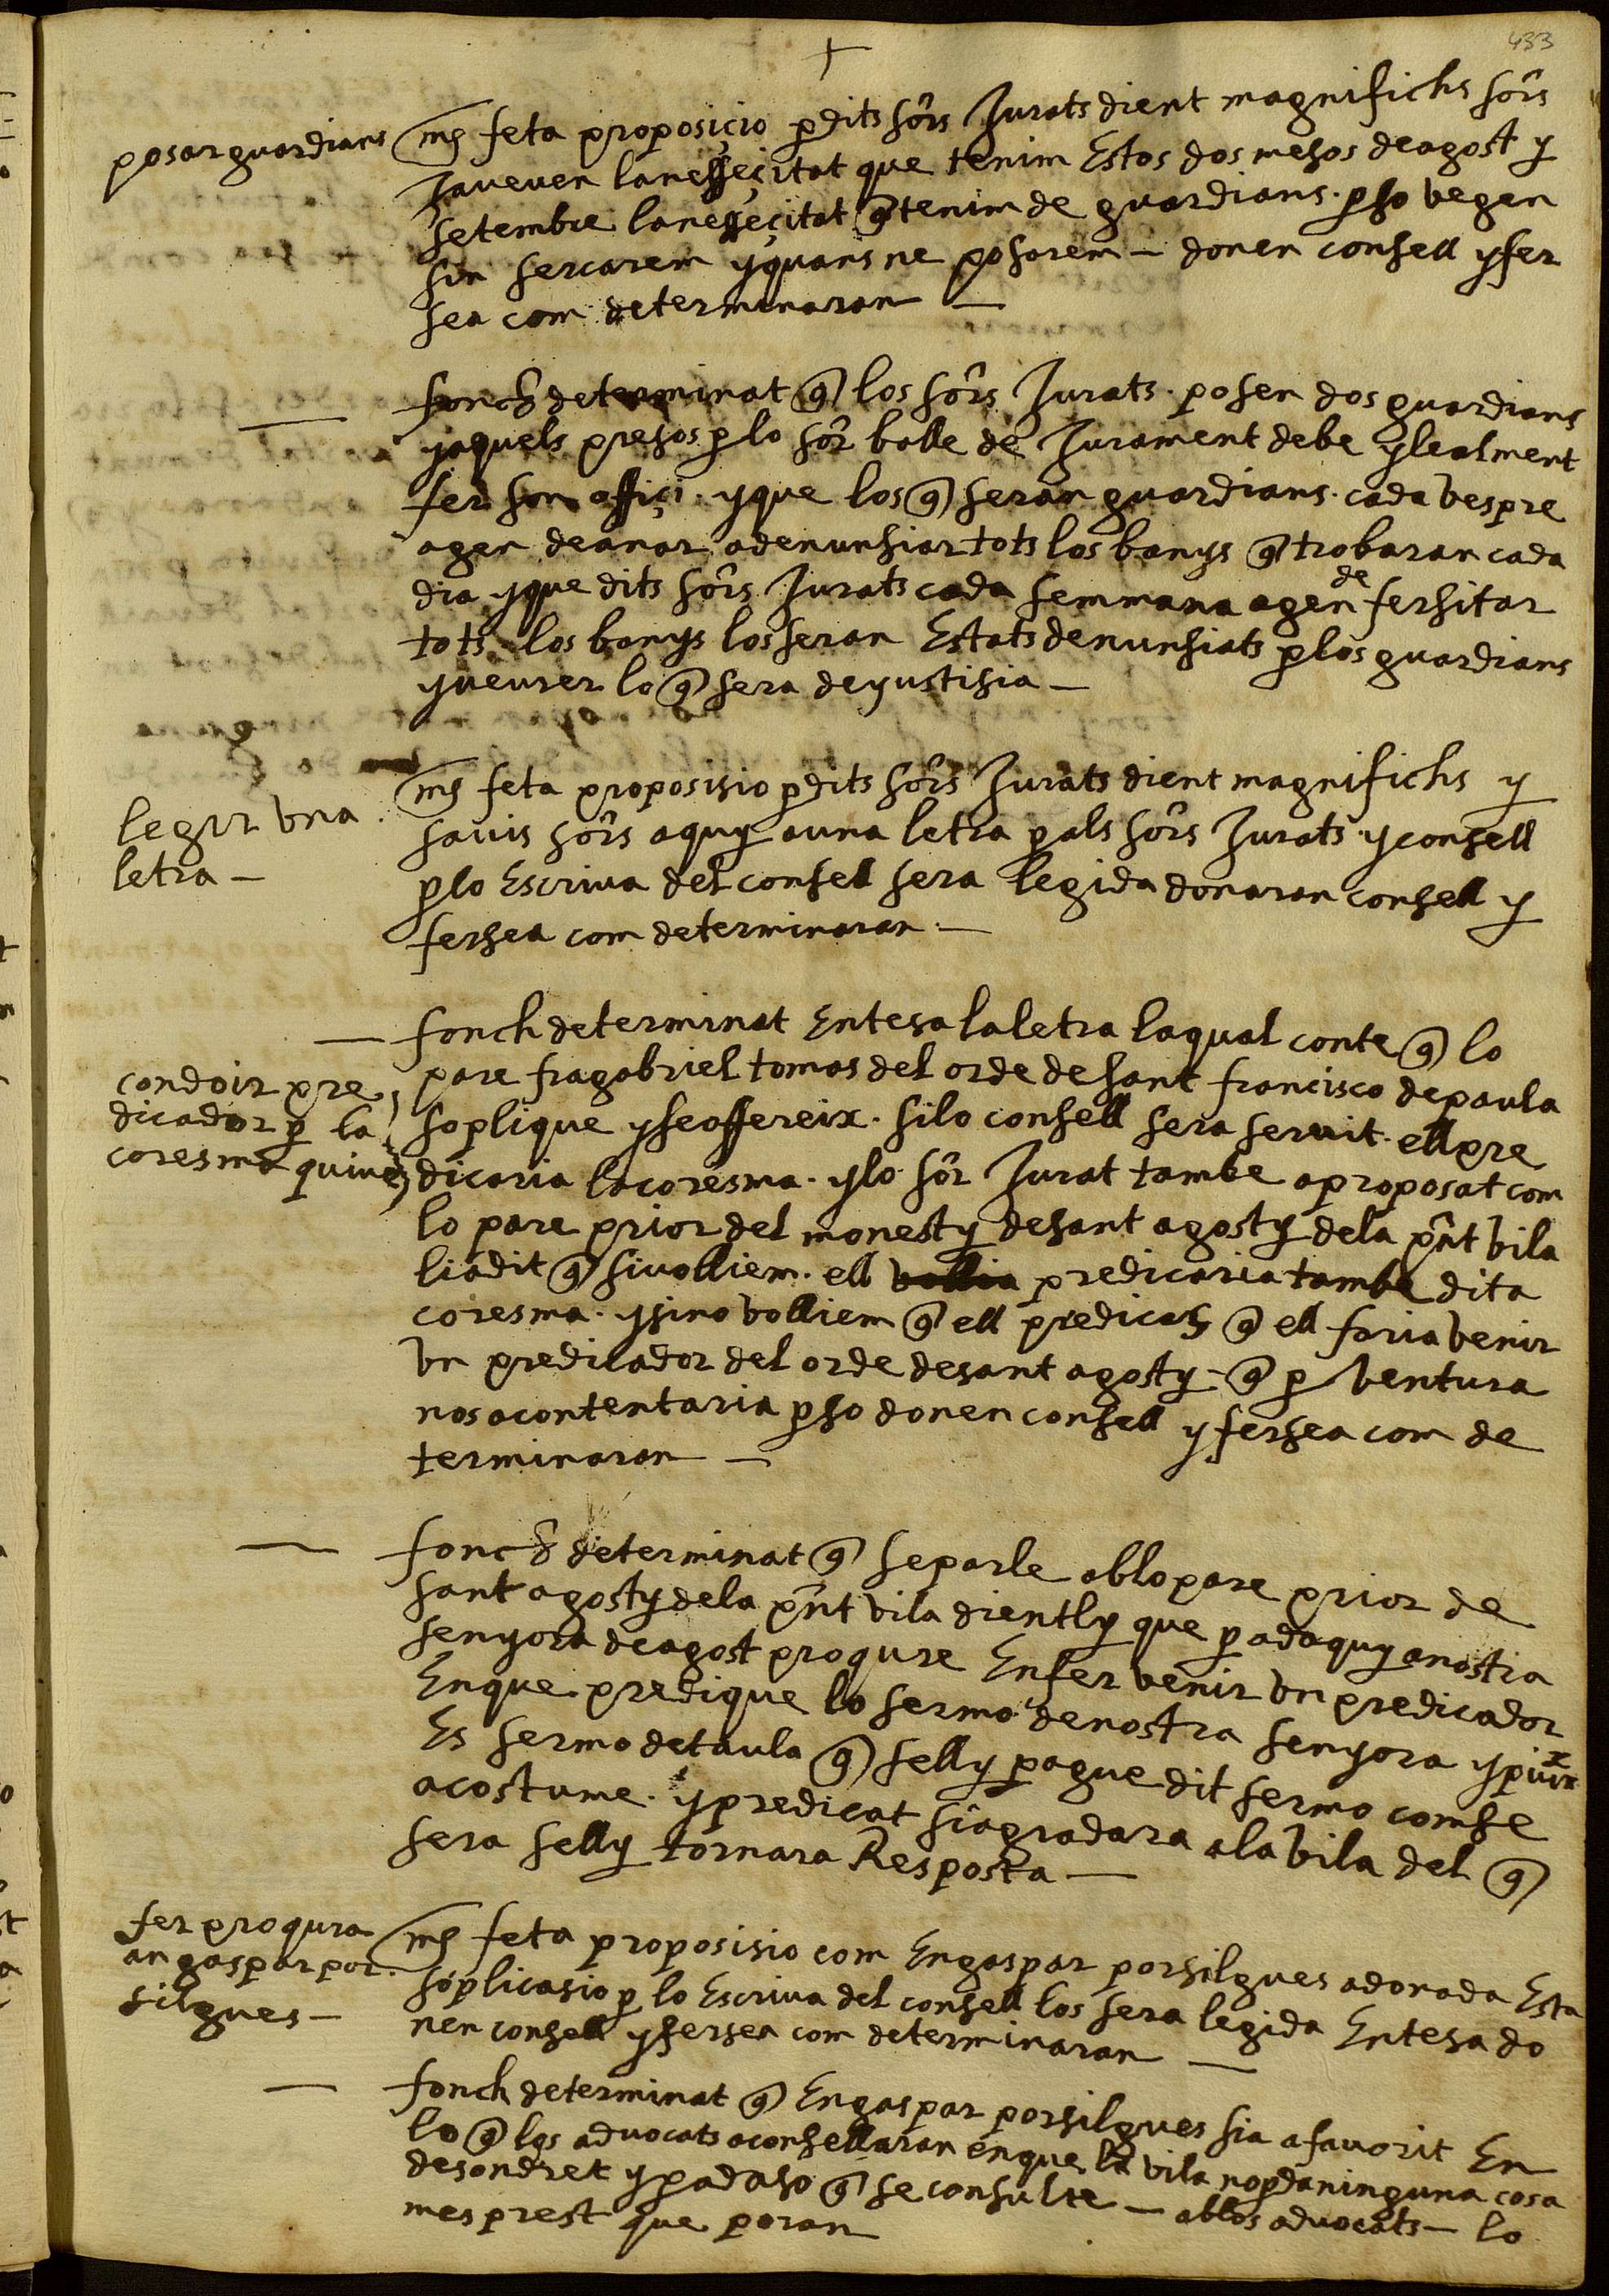 433
posar guardians
mes feta proposiçio p dits sors Jurats dient magnifichs sors
Ja veuen la nesseçitat que tenim Estos dos mesos de agost y
setembre la nesseçitat q tenim de guardians. p so vegen
sin sercarem y quans ne posarem — donen consell y fer
sea com determinaran —
fonch determinat q los sors Jurats. posen dos guardians
y aquels presos p lo sor balle de Jurament de be y lealment
fer son offiçi. y que los q seran guardians. cada vespre
agen de anar a denunsiar tots los banys q trobaran cada
dia y que dits sors Jurats cada semmana agen de fer sitar
tots los banys los seran Estats denunsiats p los guardians
y veurer lo q sera de yustisia —
legir vna
letra —
mes feta proposisio p dits sors Jurats dient magnifichs y
savis sors aquy a una letra p als sors Jurats y consell
p lo Escriva del consell sera legida donaran consell y
fersea com determinaran —
condoir pre
dicador p la
coresma quive
fonch determinat Entesa la letra la qual conte q lo
pare fra gabriel tomas del orde de sant francisco de paula
soplique y se offereix. si lo consell sera servit. ell pre
dicaria la coresma. y lo sor Jurat tambe a proposat com
lo pare prior del monesty de sant agosty de la pnt vila
li a dit q si volliem. ell vollia predicaria tambe dita
coresma. y si no volliem q ell predicas q ell faria venir
vn predicador del orde de sant agosty — q p ventura
nos acontentaria p so donen consell y fersea com de
terminaran —
fonch determinat q se parle ab lo pare prior de
sant agosty de la pnt vila dient ly que p ad aquy a nostra
senyora de agost proqure En fer venir vn predicador
En que predique lo sermo de nostra senyora y puix
Es sermo de taula q selly pague dit sermo com se
acostume. y predicat si agradara a la vila del q
sera selly tornara Resposta —
fer proqura
an gaspar por
silgues —
mes feta proposisio com En gaspar porsilgues a donada Esta
soplicasio p lo Escriva del consell los sera legida Entesa do
nen consell y fersea com determinaran —
fonch determinat q En gaspar porsilgues sia afavorit En
lo q los advocats aconsellaran en que la vila no p da ninguna cosa
de son dret y p ad aso q se consulte — ab los advocats — lo
mes prest que poran